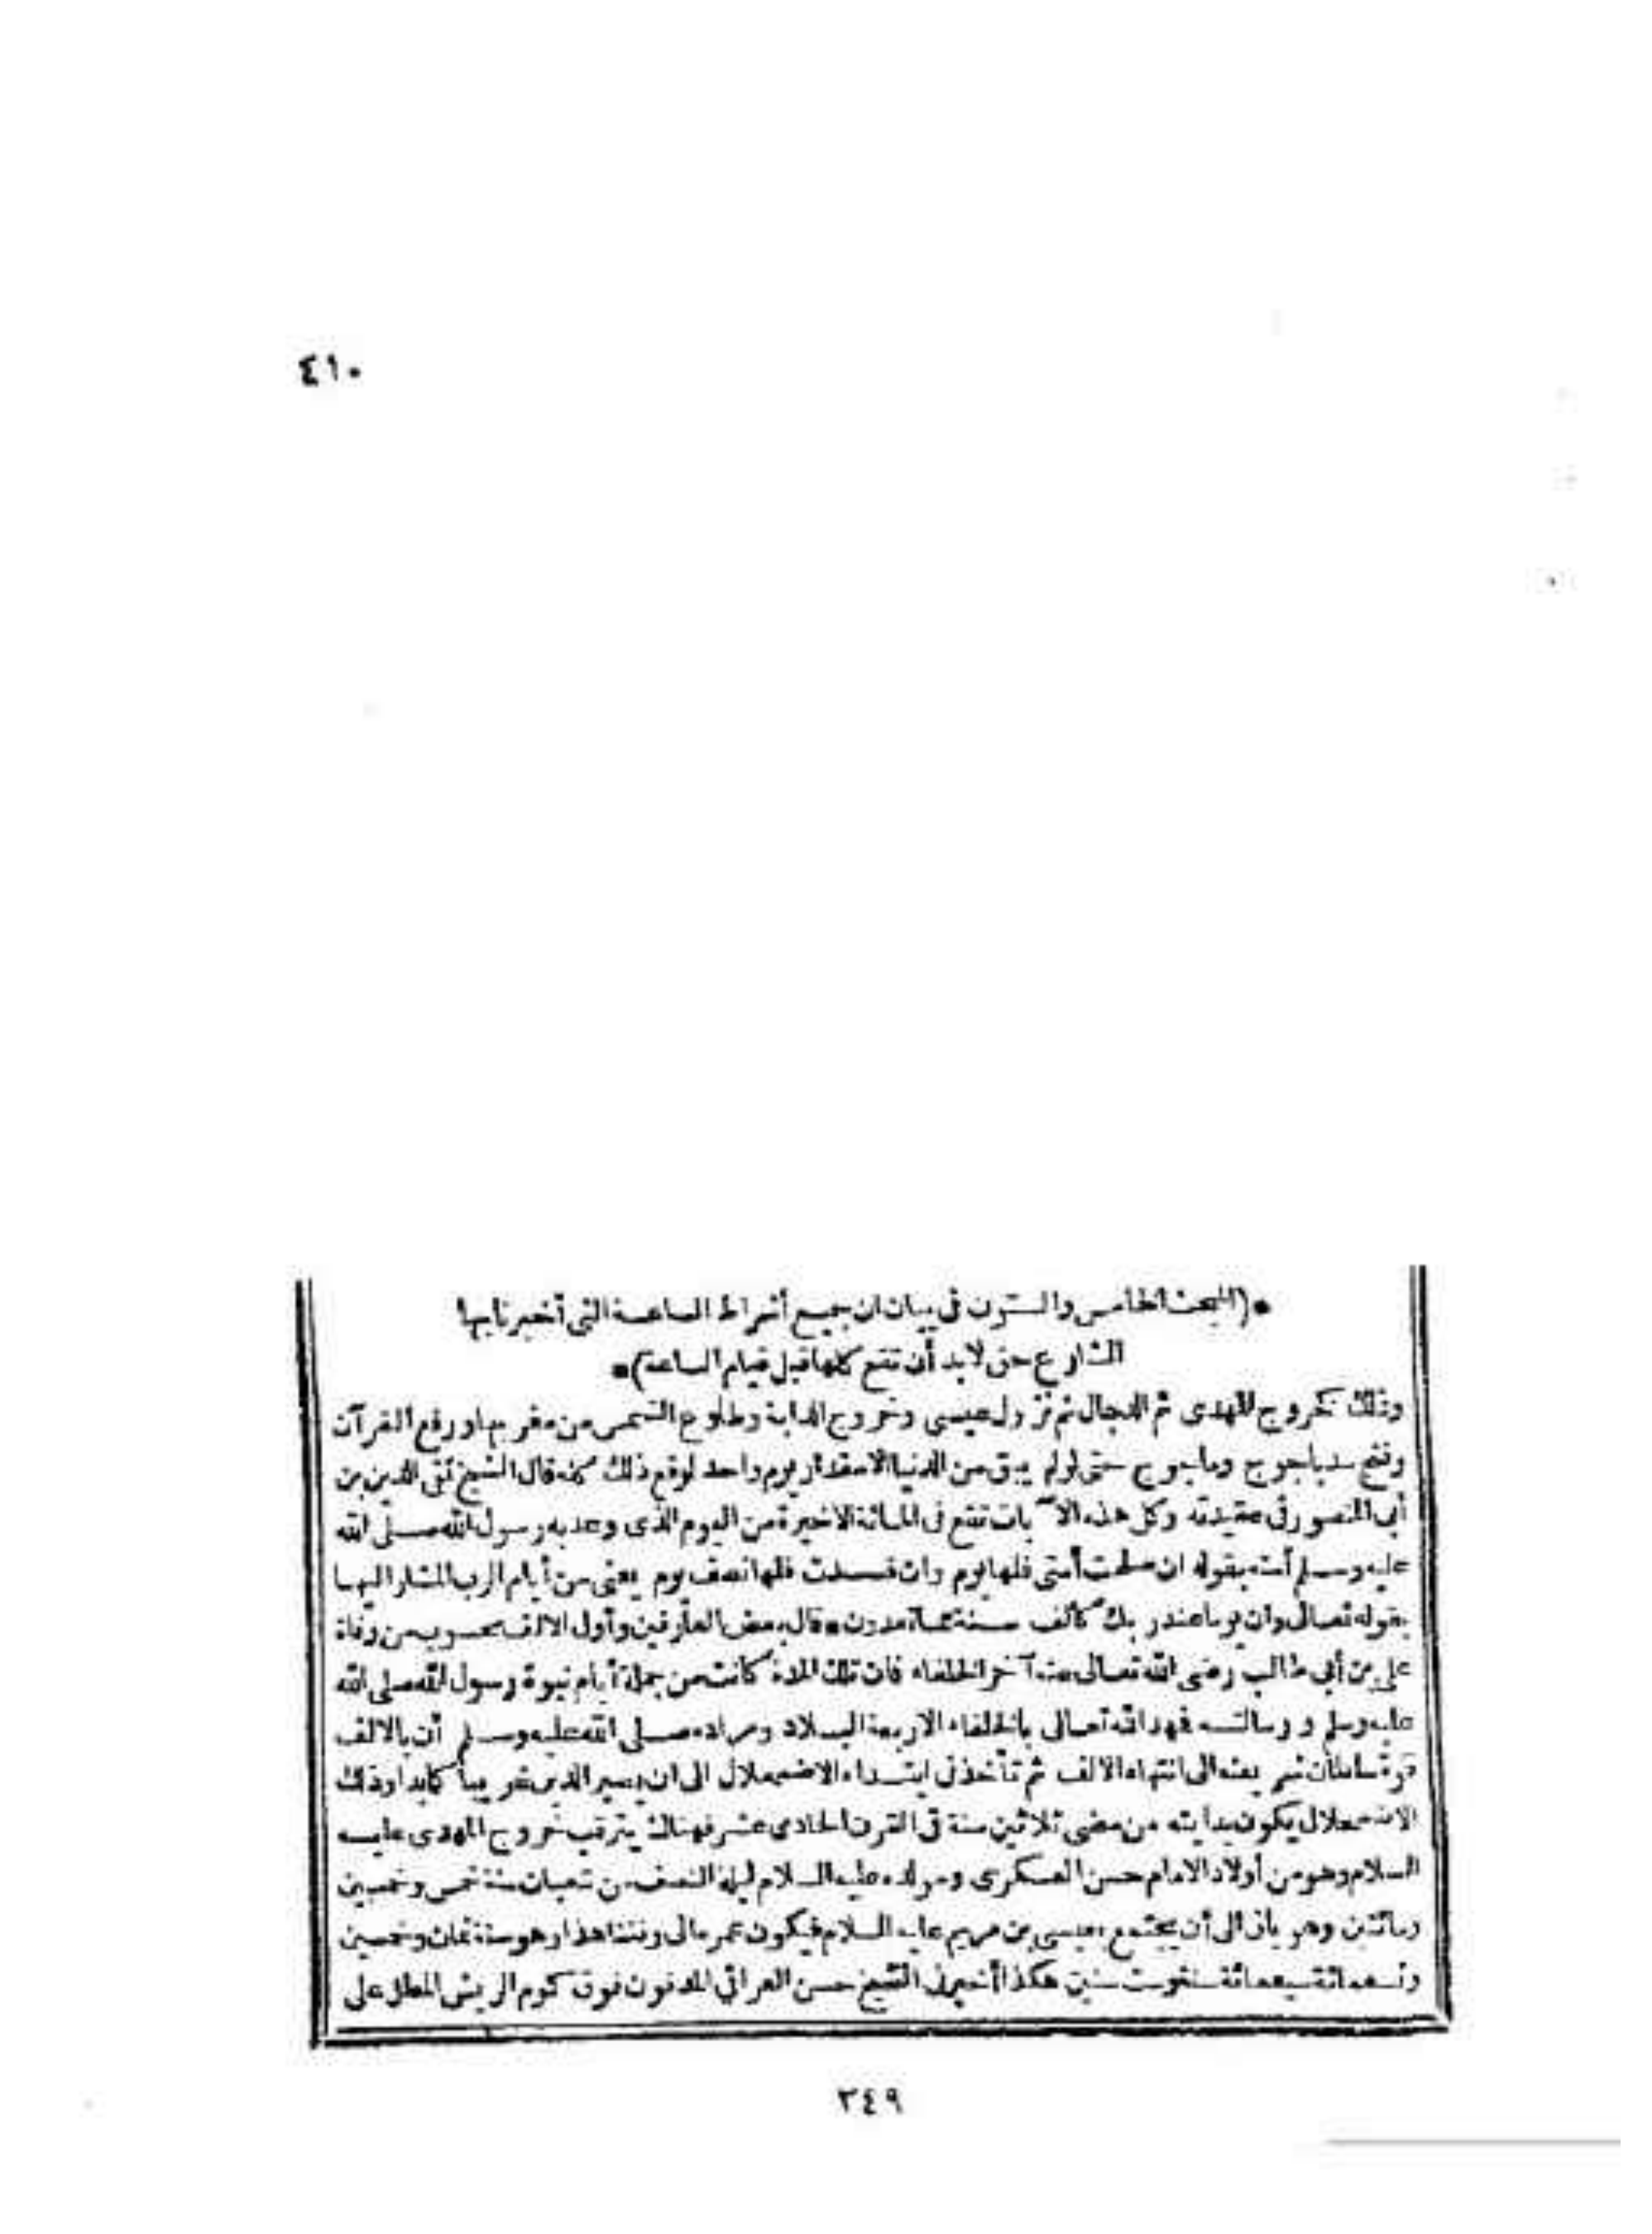 ٤١٠
*(المبحث الخامس والستون في بيان ان جميع أشراط الساعة التي أخبرنا بها
الشارع حق لابد أن تقع كلها قبل قيام الساعة)*
وذلك كخروج المهدي ثم الدجال ثم نزول عيسى وخروج الدابة وطلوع الشمس من مغربها ورفع القرآن
وفتح سد ياجوج وماجوج حتى لو لم يبق من الدنيا الا مقدار يوم واحد لوقع ذلك كله قال الشيخ تقي الدين بن
أبي المنصور في عقيدته وكل هذه الآيات تقع في المائة الاخيرة من اليوم الذي وعد به رسول الله صلى الله
عليه وسلم أمته بقوله ان صلحت أمتي فلها يوم وان فسدت فلها نصف يوم يعني من أيام الرب المشار اليها
بقوله تعالى وان يوما عند ربك كألف سنة مما تعدون * قال بعض العارفين وأول الالف محسوب من وفاة
علي بن أبي طالب رضي الله تعالى عنه آخر الخلفاء فان تلك المدة كانت من جملة أيام نبوة رسول الله صلى الله
عليه وسلم ورسالته فمهد الله تعالى بالخلفاء الاربعة البلاد ومراده صلى الله عليه وسلم أن بالالف
قوة سلطان شريعته الى انتهاء الالف ثم تأخذ في ابتداء الاضمحلال الى ان يصير الدين غريبا كما بدا وذلك
الاضمحلال يكون بدايته من مضي ثلاثين سنة في القرن الحادي عشر فهناك يترقب خروج المهدي عليه
السلام وهو من أولاد الامام حسن العسكري ومولده عليه السلام ليلة النصف من شعبان سنة خمس وخمسين
ومائتين وهو باق الى أن يجتمع بعيسى بن مريم عليه السلام فيكون عمره الى وقتنا هذا وهو سنة ثمان وخمسين
وتسعمائة سبعمائة سنة وست سنين هكذا أخبرني الشيخ حسن العراقي المدفون فوق كوم الريش المطل على
٣٤٩